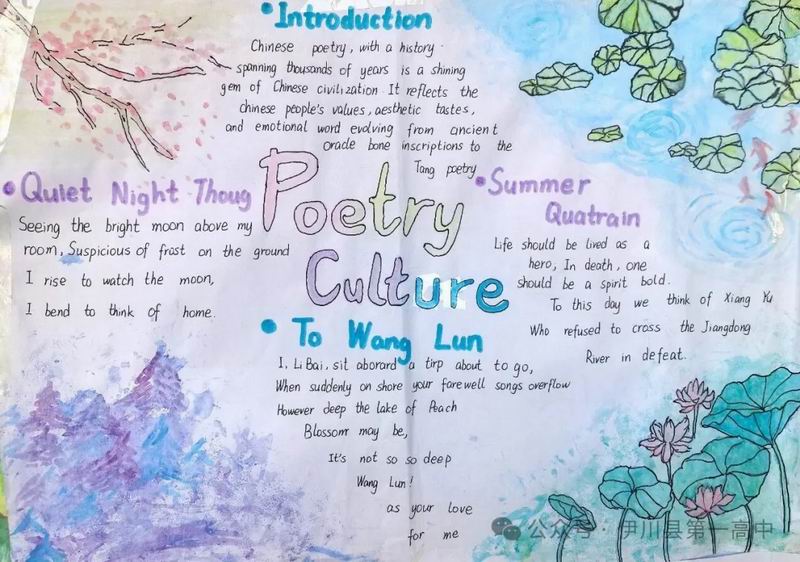 Introduction
Chinese poetry, with a history
spanning thousands of years is a shining
gem of Chinese civilization It reflects the
chinese people's values, aesthetic tastes,
and emotional word evolving from ancient
oracle bone inscriptions to the
Tang poetry
Poetry
Culture
Quiet Night Thoug
Seeing the bright moon above my
room, Suspicious of frost on the ground
I rise to watch the moon,
I bend to think of home.
Summer
Quatrain
Life should be lived as a
hero, In death, one
should be a spirit bold.
To this day we think of Xiang Yu
Who refused to cross the Jiangdong
River in defeat.
To Wang Lun
I, Li Bai, sit aborard a tirp about to go,
When suddenly on shore your farewell songs overflow
However deep the lake of Peach
Blossom may be,
It's not so so deep
Wang Lun!
as your love
for me
公众号·伊川县第一高中